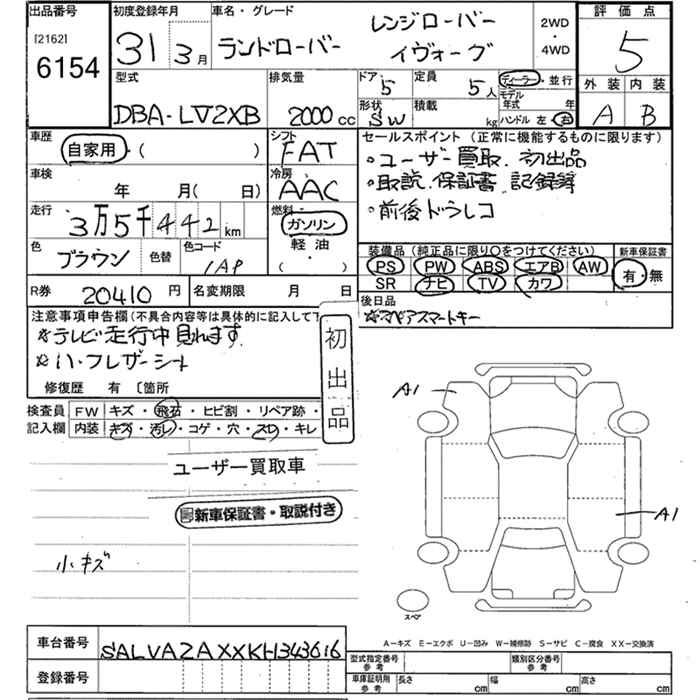 出品番号
[2162]
6154
初度登録年月
31 3月
車名・グレード
ランドローバー
レンジローバー
イヴォーグ
2WD
・
4WD
評価点
5
外装 内装
A B
型式
DBA-LV2XB
排気量
2000cc
ドア
5
定員
5人
形状
SW
積載
kg
ディーラー・並行
モデル
年式 年
ハンドル 左 右
車歴
自家用・( )
シフト
FAT
セールスポイント (正常に機能するものに限ります)
・ユーザー買取、初出品
・取説、保証書、記録簿
・前後ドラレコ
車検
年 月( 日)
冷房
AAC
走行
3万5千442km
燃料
ガソリン
軽油
( )
色
ブラウン
色替
色コード
1AP
装備品(純正品に限り○をつけてください)
PS PW ABS エアB AW
SR ナビ TV カワ
新車保証書
有・無
R券 20410円
名変期限 月 日
後日品
☆スペアスマートキー
注意事項申告欄(不具合内容等は具体的に記入して下
※テレビ走行中見れます
※ハーフレザーシート
修復歴 有 〔箇所
初出品
検査員
記入欄
FW キズ・飛石・ヒビ割・リペア跡・
内装 キズ・汚レ・コゲ・穴・スレ・キレ
ユーザー買取車
新車保証書・取説付き
小キズ
A1
A1
スペア
A-キズ E-エクボ U-凹み W-補修跡 S-サビ C-腐食 XX-交換済
車台番号
SALVA2AXXKH343616
登録番号
型式指定番号
参考
類別区分番号
参考
車庫証明用
参考
長さ cm
幅 cm
高さ cm